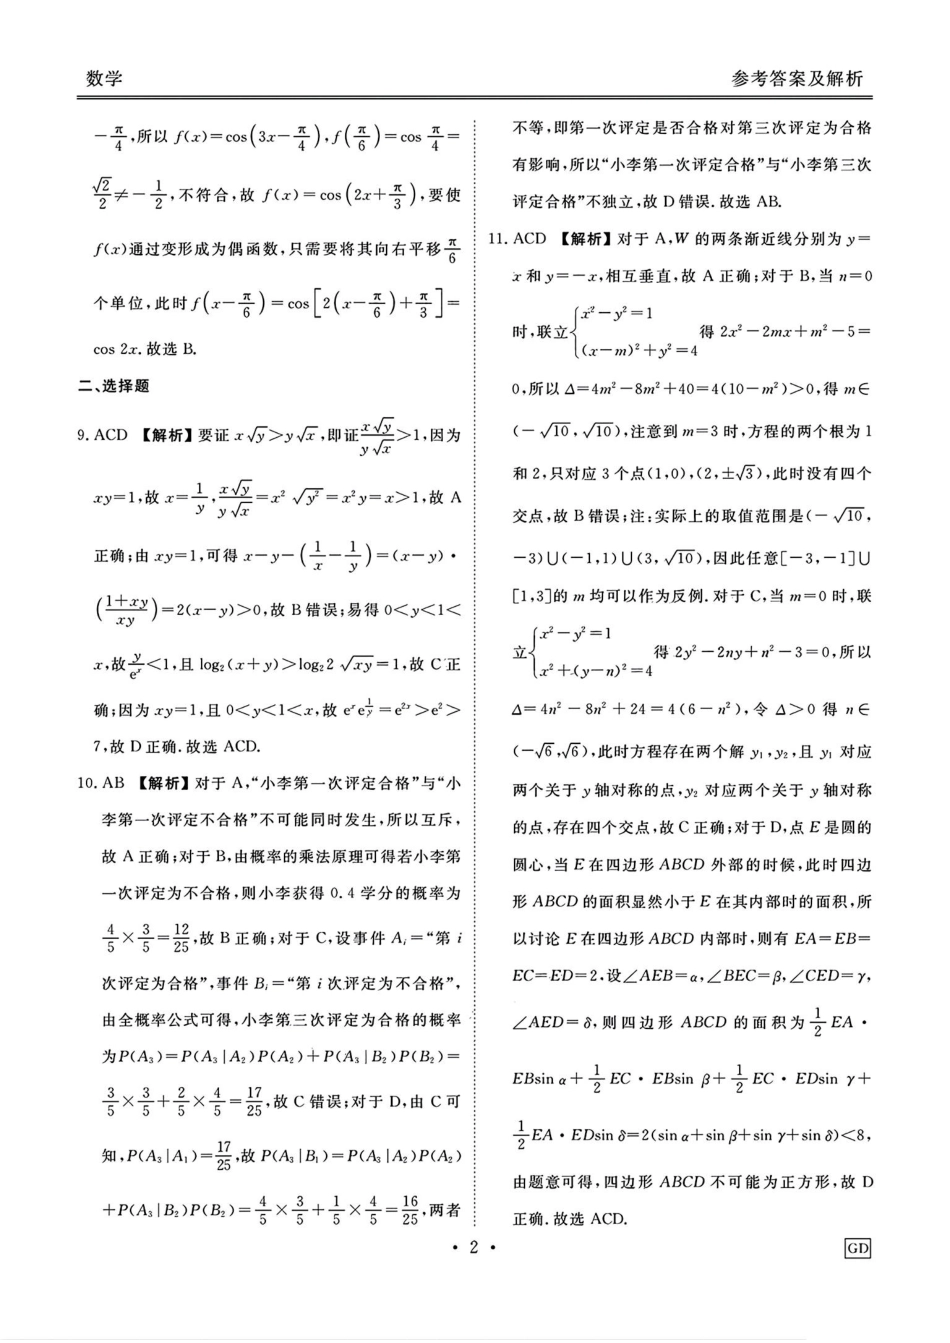 数学
参考答案及解析
-π/4,所以 f(x)=cos(3x-π/4),f(π/6)=cos π/4=
√2/2≠-1/2,不符合,故 f(x)=cos(2x+π/3),要使
f(x)通过变形成为偶函数,只需要将其向右平移π/6
个单位,此时f(x-π/6)=cos[2(x-π/6)+π/3]=
cos 2x.故选 B.
二、选择题
9. ACD 【解析】要证 x√y>y√x,即证x√y/y√x>1,因为
xy=1,故 x=1/y,x√y/y√x=x²√y²=x²y=x>1,故 A
正确;由 xy=1,可得 x-y-(1/x-1/y)=(x-y)·
((1+xy)/xy)=2(x-y)>0,故 B 错误;易得 0<y<1<
x,故y/eˣ<1,且 log₂(x+y)>log₂2√xy=1,故 C 正
确;因为 xy=1,且 0<y<1<x,故 eˣe^(1/y)=e²ˣ>e²>
7,故 D 正确.故选 ACD.
10. AB 【解析】对于 A,“小李第一次评定合格”与“小
李第一次评定不合格”不可能同时发生,所以互斥,
故 A 正确;对于 B,由概率的乘法原理可得若小李第
一次评定为不合格,则小李获得 0.4 学分的概率为
4/5×3/5=12/25,故 B 正确;对于 C,设事件 Aᵢ=“第 i
次评定为合格”,事件 Bᵢ=“第 i 次评定为不合格”,
由全概率公式可得,小李第三次评定为合格的概率
为P(A₃)=P(A₃|A₂)P(A₂)+P(A₃|B₂)P(B₂)=
3/5×3/5+2/5×4/5=17/25,故 C 错误;对于 D,由 C 可
知,P(A₃|A₁)=17/25,故 P(A₃|B₁)=P(A₃|A₂)P(A₂)
+P(A₃|B₂)P(B₂)=4/5×3/5+1/5×4/5=16/25,两者
不等,即第一次评定是否合格对第三次评定为合格
有影响,所以“小李第一次评定合格”与“小李第三次
评定合格”不独立,故 D 错误.故选 AB.
11. ACD 【解析】对于 A,W 的两条渐近线分别为 y=
x 和 y=-x,相互垂直,故 A 正确;对于 B,当 n=0
时,联立{x²-y²=1
(x-m)²+y²=4 得 2x²-2mx+m²-5=
0,所以 Δ=4m²-8m²+40=4(10-m²)>0,得 m∈
(-√10,√10),注意到 m=3 时,方程的两个根为 1
和 2,只对应 3 个点(1,0),(2,±√3),此时没有四个
交点,故 B 错误;注:实际上的取值范围是(-√10,
-3)∪(-1,1)∪(3,√10),因此任意[-3,-1]∪
[1,3]的 m 均可以作为反例.对于 C,当 m=0 时,联
立{x²-y²=1
x²+(y-n)²=4 得 2y²-2ny+n²-3=0,所以
Δ=4n²-8n²+24=4(6-n²),令 Δ>0 得 n∈
(-√6,√6),此时方程存在两个解 y₁,y₂,且 y₁ 对应
两个关于 y 轴对称的点,y₂ 对应两个关于 y 轴对称
的点,存在四个交点,故 C 正确;对于 D,点 E 是圆的
圆心,当 E 在四边形 ABCD 外部的时候,此时四边
形 ABCD 的面积显然小于 E 在其内部时的面积,所
以讨论 E 在四边形 ABCD 内部时,则有 EA=EB=
EC=ED=2.设∠AEB=α,∠BEC=β,∠CED=γ,
∠AED=δ,则四边形 ABCD 的面积为 1/2 EA·
EBsin α+1/2 EC·EBsin β+1/2 EC·EDsin γ+
1/2 EA·EDsin δ=2(sin α+sin β+sin γ+sin δ)<8,
由题意可得,四边形 ABCD 不可能为正方形,故 D
正确.故选 ACD.
· 2 ·
GD